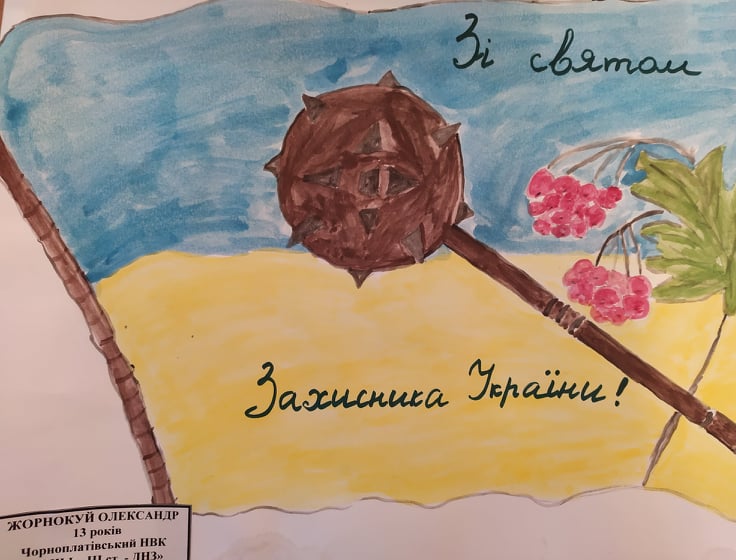 Зі святом
Захисника України!
ЖОРНОКУЙ ОЛЕКСАНДР
13 років
Чорноплатівський НВК
ст. - ДНЗ»